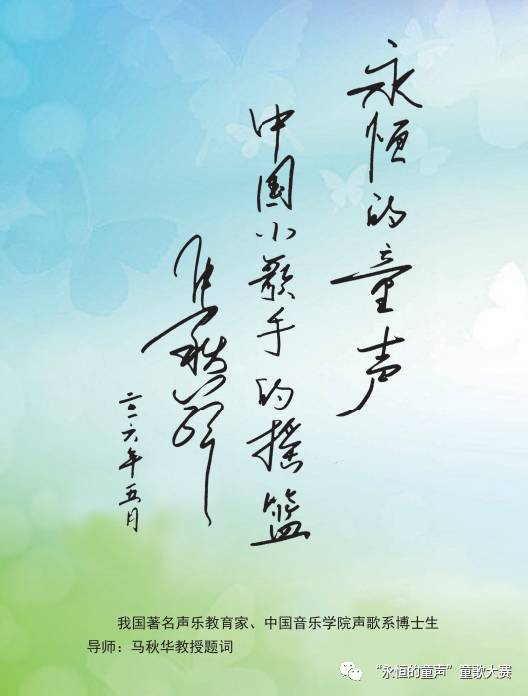 永恒的童声
中国小歌手的摇篮
马秋华
二〇一六年五月
我国著名声乐教育家、中国音乐学院声歌系博士生
导师：马秋华教授题词
“永恒的童声”童歌大赛